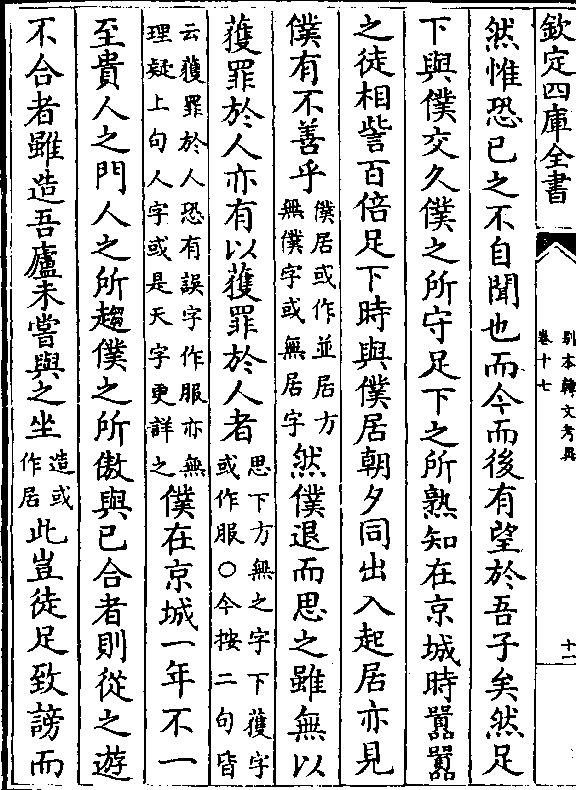 欽定四庫全書
別本韓文考異
卷十七
十一
然惟恐已之不自聞也而今而後有望於吾子矣然足
下與僕交久僕之所守足下之所熟知在京城時囂囂
之徒相訾百倍足下時與僕居朝夕同出入起居亦見
僕有不善乎僕居或作並居方無僕字或無居字然僕退而思之雖無以
獲罪於人亦有以獲罪於人者思下方無之字下獲字或作服○今按二句皆
云獲罪於人恐有誤字作服亦無理疑上句人字或是天字更詳之僕在京城一年不一
至貴人之門人之所趨僕之所傲與已合者則從之遊
不合者雖造吾廬未嘗與之坐造或作居此豈徒足致謗而